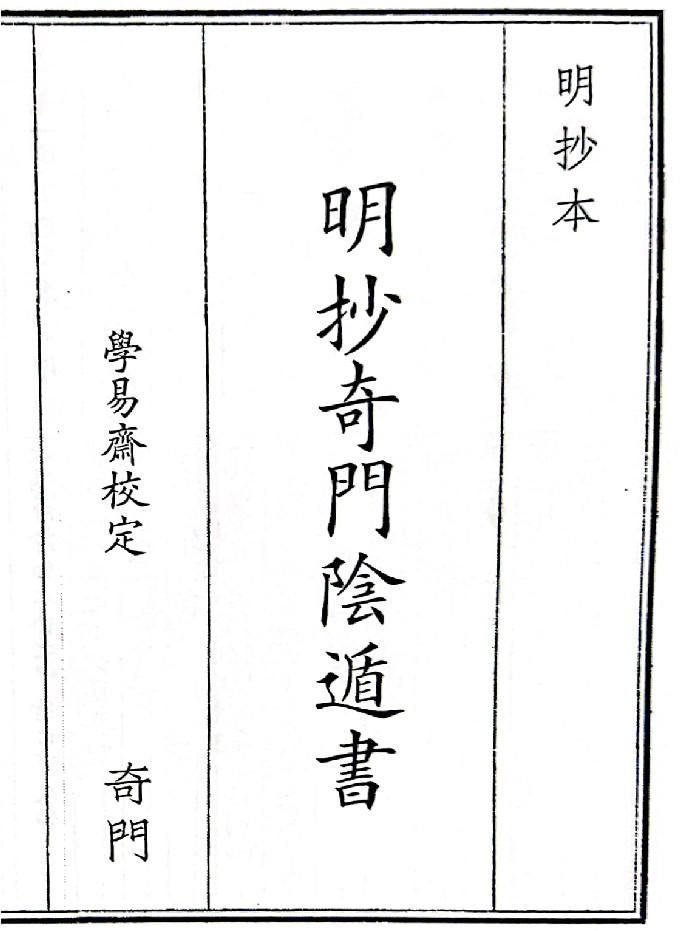 明抄本
明抄奇門陰遁書
學易齋校定
奇門